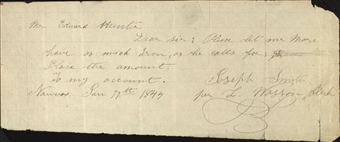 Mr. Edward Hunter
Dear sir; Please let Mr. Moore
have as much Iron, as he calls for,
Place the amount
To my account.
Nauvoo Jan 17th 1844
Joseph Smith
per L. Clerk